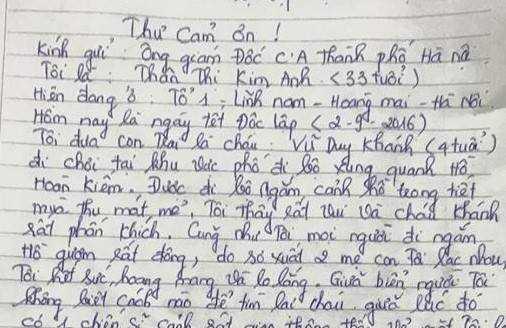 Thư Cảm ơn !
Kính gửi : Ông giám Đốc C.A thành phố Hà nội
Tôi là : Thân Thị Kim Anh (33 tuổi)
Hiện đang ở : Tổ 1 - Lĩnh nam - Hoàng mai - Hà Nội.
Hôm nay là ngày tết Độc lập (2-9-2016)
Tôi đưa con trai là cháu : Vũ Duy Khánh (4 tuổi)
đi chơi tại khu vực phố đi bộ xung quanh Hồ
Hoàn Kiếm. Được đi bộ ngắm cảnh hồ trong tiết
mùa thu mát mẻ, Tôi thấy rất vui và cháu Khánh
rất phấn khích. Cũng như Tôi mọi người đi ngắm
Hồ gươm rất đông, do sơ xuất 2 mẹ con Tôi lạc nhau,
Tôi hết sức hoang mang và lo lắng. Giữa biển người Tôi
không biết cách nào để tìm lại cháu, giữa lúc đó
có 1 chiến sĩ cảnh sát giao thông